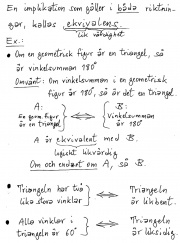 En implikation som gäller i båda riktnin-
gar, kallas ekvivalens.
lik värdighet
Ex.:
• Om en geometrisk figur är en triangel, så
är vinkelsumman 180°
Omvänt: Om vinkelsumman i en geometrisk
figur är 180°, så är det en triangel.
A: B:
En geom. figur är en triangel ⟺ Vinkelsumman är 180°
A är ekvivalent med B.
logiskt likvärdig
Om och endast om A, så B
• Triangeln har två lika stora vinklar ⟺ Triangeln är likbent.
• Alla vinklar i triangeln är 60° ⟺ Triangeln är liksidig.